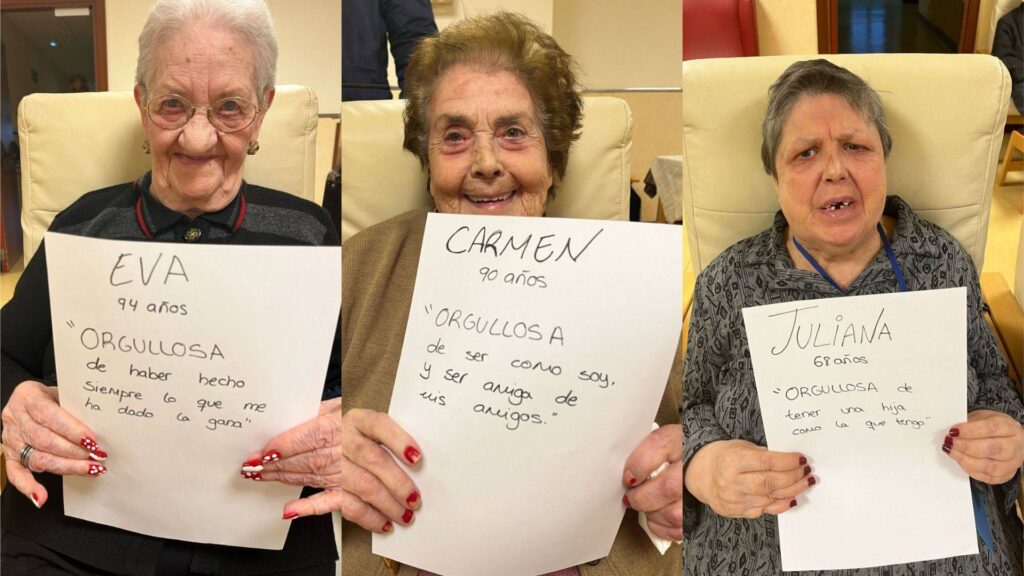 EVA
94 años
"ORGULLOSA
de haber hecho
siempre lo que me
ha dado la gana"
CARMEN
90 años
"ORGULLOSA
de ser como soy,
y ser amiga de
mis amigos."
JULIANA
68 años
"ORGULLOSA de
tener una hija
como la que tengo"